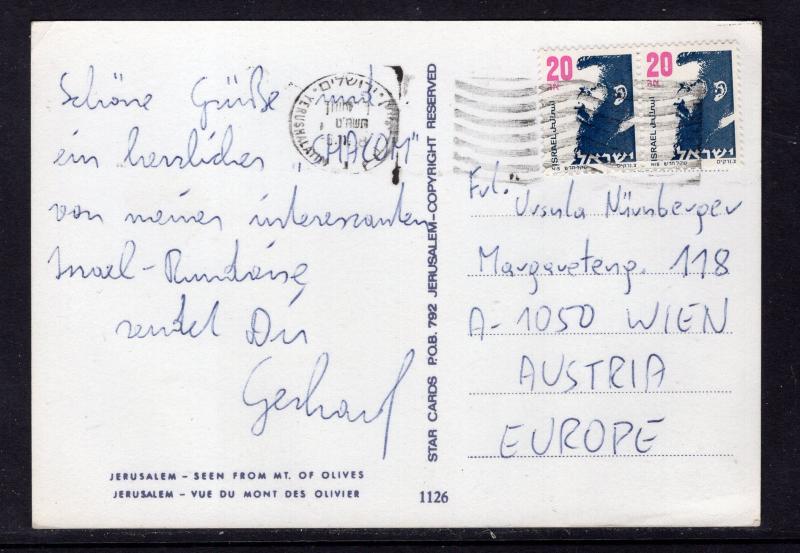 Schöne Grüße und
ein herzliches „SHALOM"
von meiner interessanten
Israel-Rundreise
sendet Dir
Gerhard
JERUSALEM – SEEN FROM MT. OF OLIVES
JERUSALEM – VUE DU MONT DES OLIVIER
STAR CARDS P.O.B. 792 JERUSALEM–COPYRIGHT RESERVED
1126
ירושלים
YERUSHALAYIM
20
אג
ISRAEL
ישראל
שקל חדש NIS
צ. נרקיס
20
אג
ISRAEL
ישראל
שקל חדש NIS
צ. נרקיס
Frl.
Ursula Nürnberger
Margareteng. 118
A-1050 WIEN
AUSTRIA
EUROPE